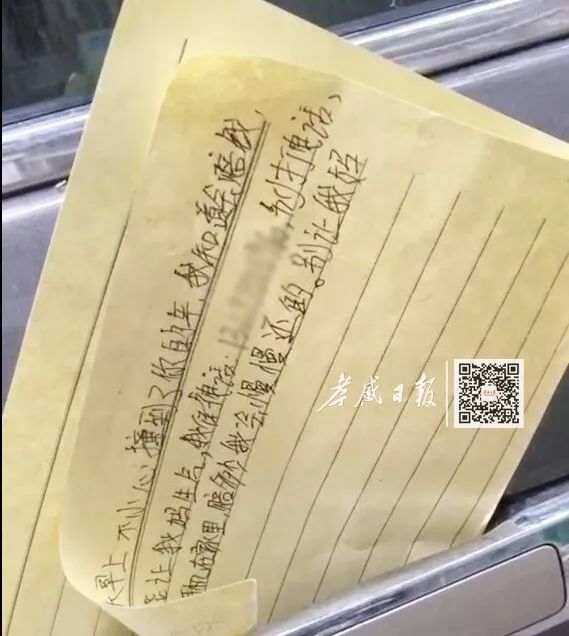 早上不小心撞到了你的车,我知道会赔钱,
让我妈生气,我家电话:13 ,别打电话,
在家里,赔多少我会慢慢还的。别让我妈
孝感日报